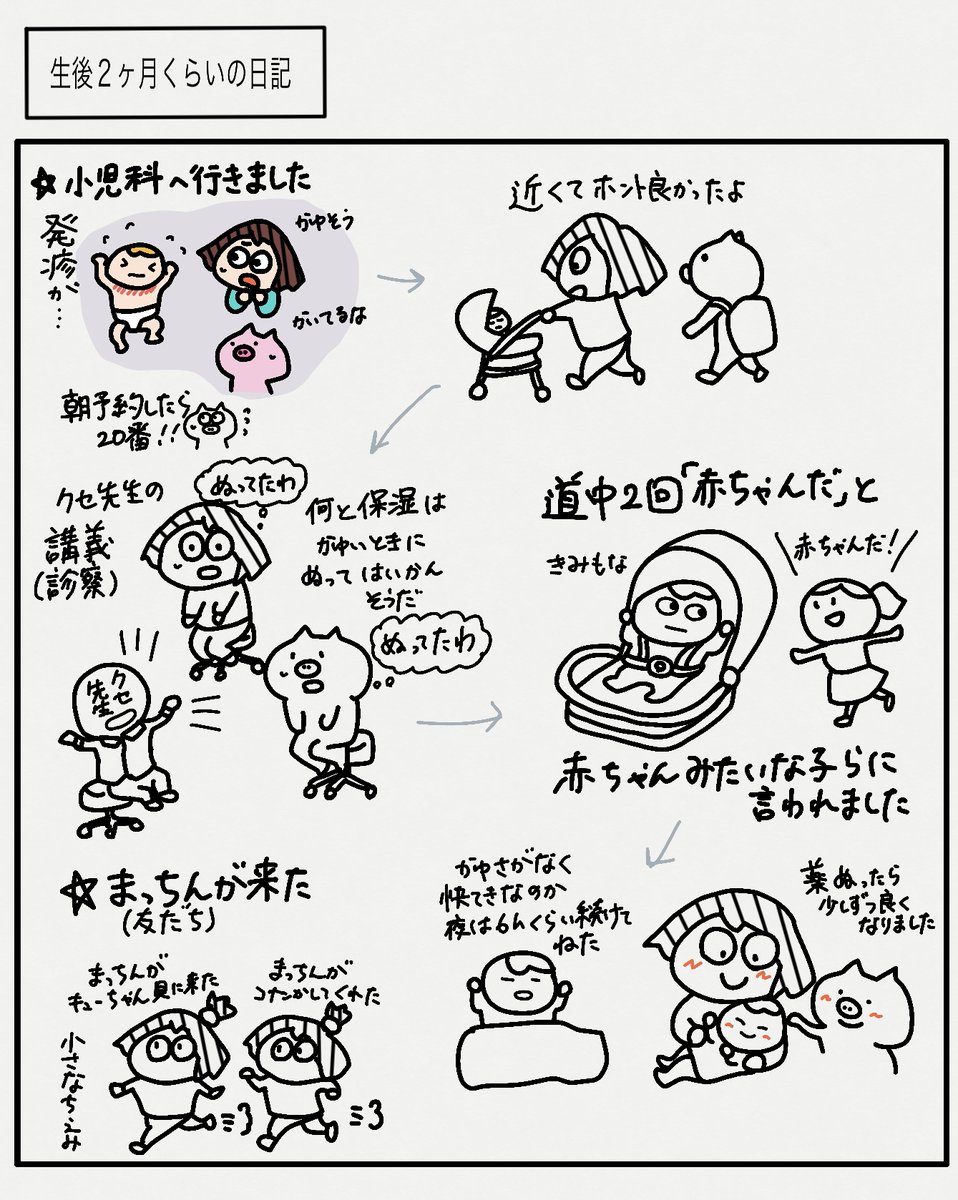 生後２ヶ月くらいの日記
☆小児科へ行きました
発疹が…
かゆそう
かいてるな
近くてホント良かったよ
朝予約したら
20番!!
クセ先生の
講義
(診察)
ぬってたわ
何と保湿は
かゆいときに
ぬってはいかん
そうだ
ぬってたわ
クセ
先生
道中2回「赤ちゃんだ」と
きみもな
赤ちゃんだ!
赤ちゃんみたいな子らに
言われました
薬ぬったら
少しずつ良く
なりました
かゆさがなく
快てきなのか
夜は6hくらい続けて
ねた
☆まっちんが来た
(友だち)
まっちんが
キューちゃん見に来た
まっちんが
コナンかしてくれた
小さなちえみ